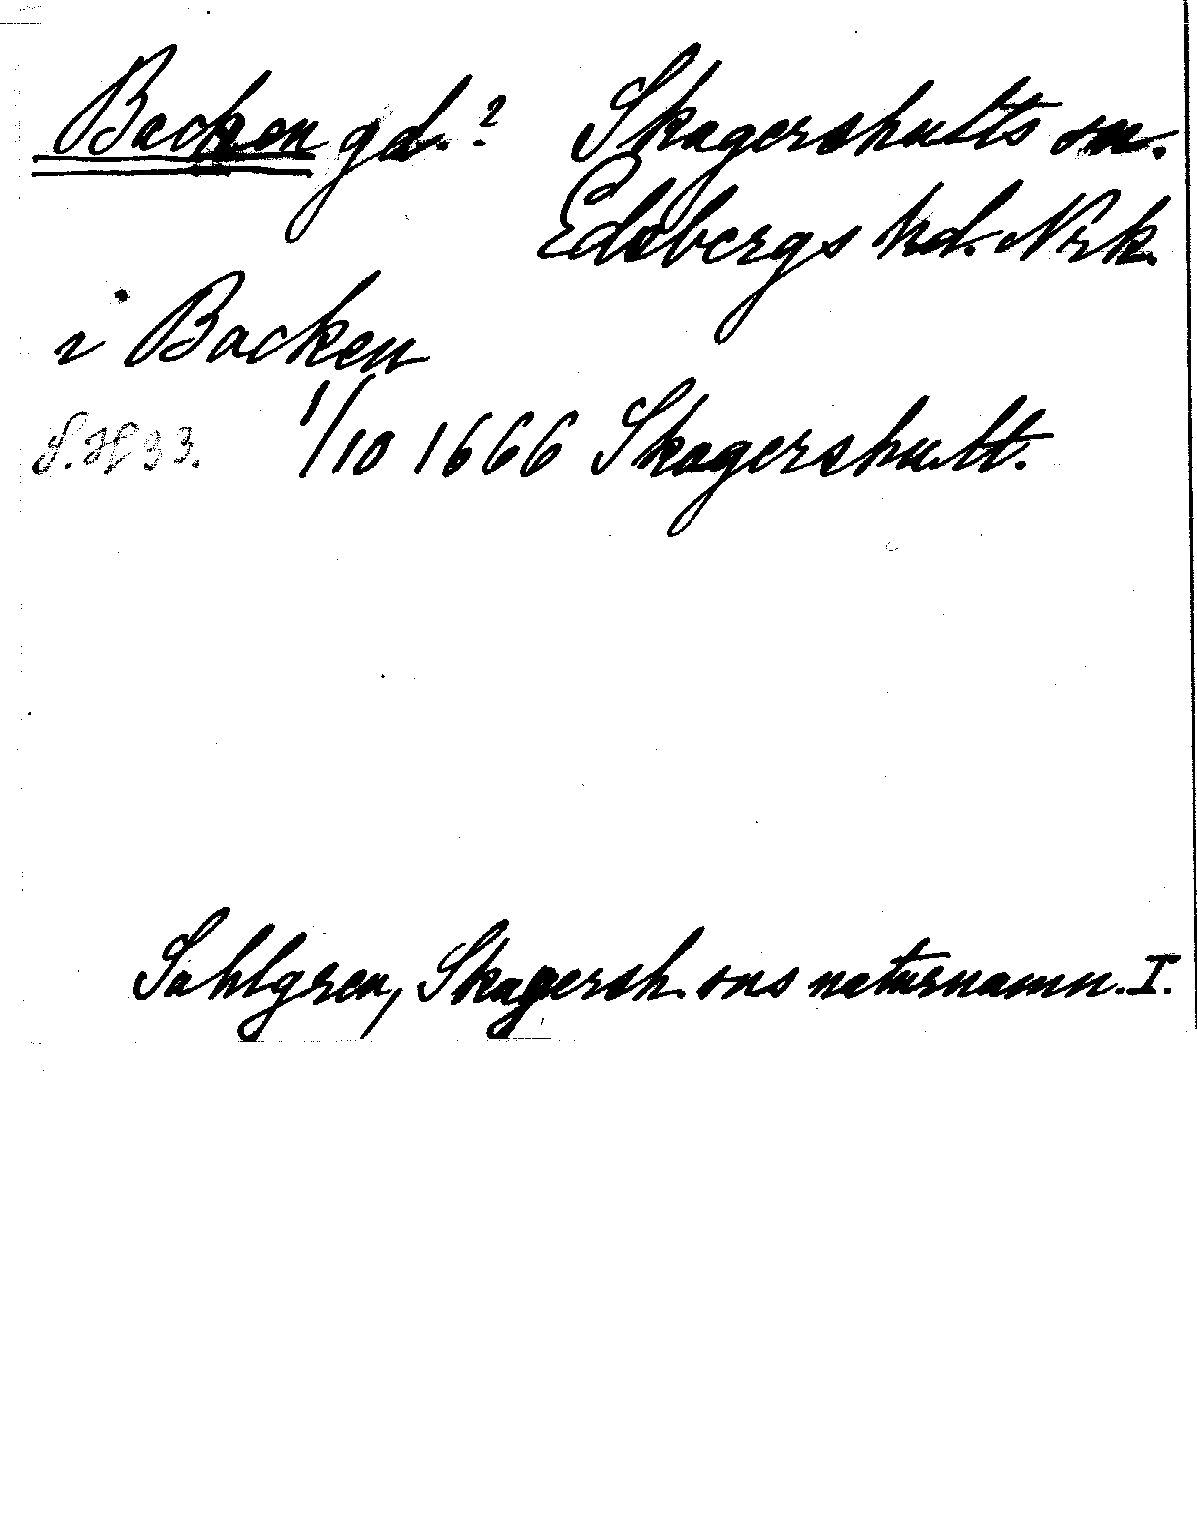 Backen gd.? Skagershults sn.
Edsbergs hd. Nrk.
i Backen
1/10 1666 Skagershult.
Sahlgren, Skagersh. sns naturnamn. I.